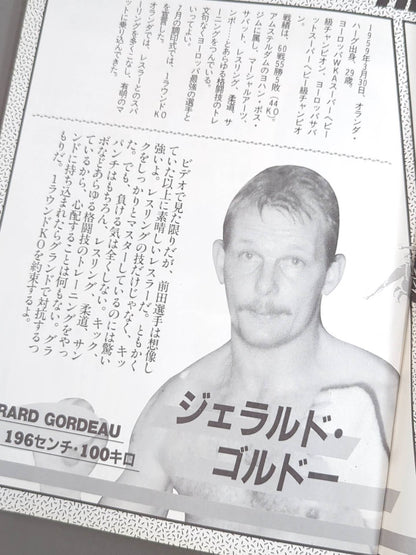 1959年3月30日、オランダ・
ハーグ出身、29歳。
ヨーロッパWKAスーパーヘビー
級チャンピオン、ヨーロッパサバ
ットスーパーヘビー級チャンピオ
戦績は、60戦55勝5敗(44KO)、
アムステルダムのヨハン・ボス・
ジムに属し、マーシャルアーツ、
サバット、レスリング、柔道、サ
ンボ…とあらゆる格闘技のトレ
ーニングをつんでいる。
文句なくヨーロッパ最強の選手と
いってよい。
7月の調印式では、1ラウンドKO
を宣言した。
オランダでは、レスラーとのスパ
ーリングを多くこなし、有明のマ
ットに乗り込んできた。
ビデオで見た限りだが、前田選手は想像し
ていた以上に素晴しいレスラーだ。ともかく
強いよ。レスリングの技だけじゃなく、キッ
クをしっかりとマスターしているのには驚い
た。でも、負ける気は全くしない。キック、
パンチはもちろん、レスリング、柔道、サン
ボなどあらゆる格闘技のトレーニングをやっ
ているから、心配することは何もない。グラ
ンドに持ち込まれたらグランドで対抗するつ
もりだ。1ラウンドKOを約束するよ。
ジェラルド・
ゴルドー
RARD GORDEAU
196センチ・100キロ